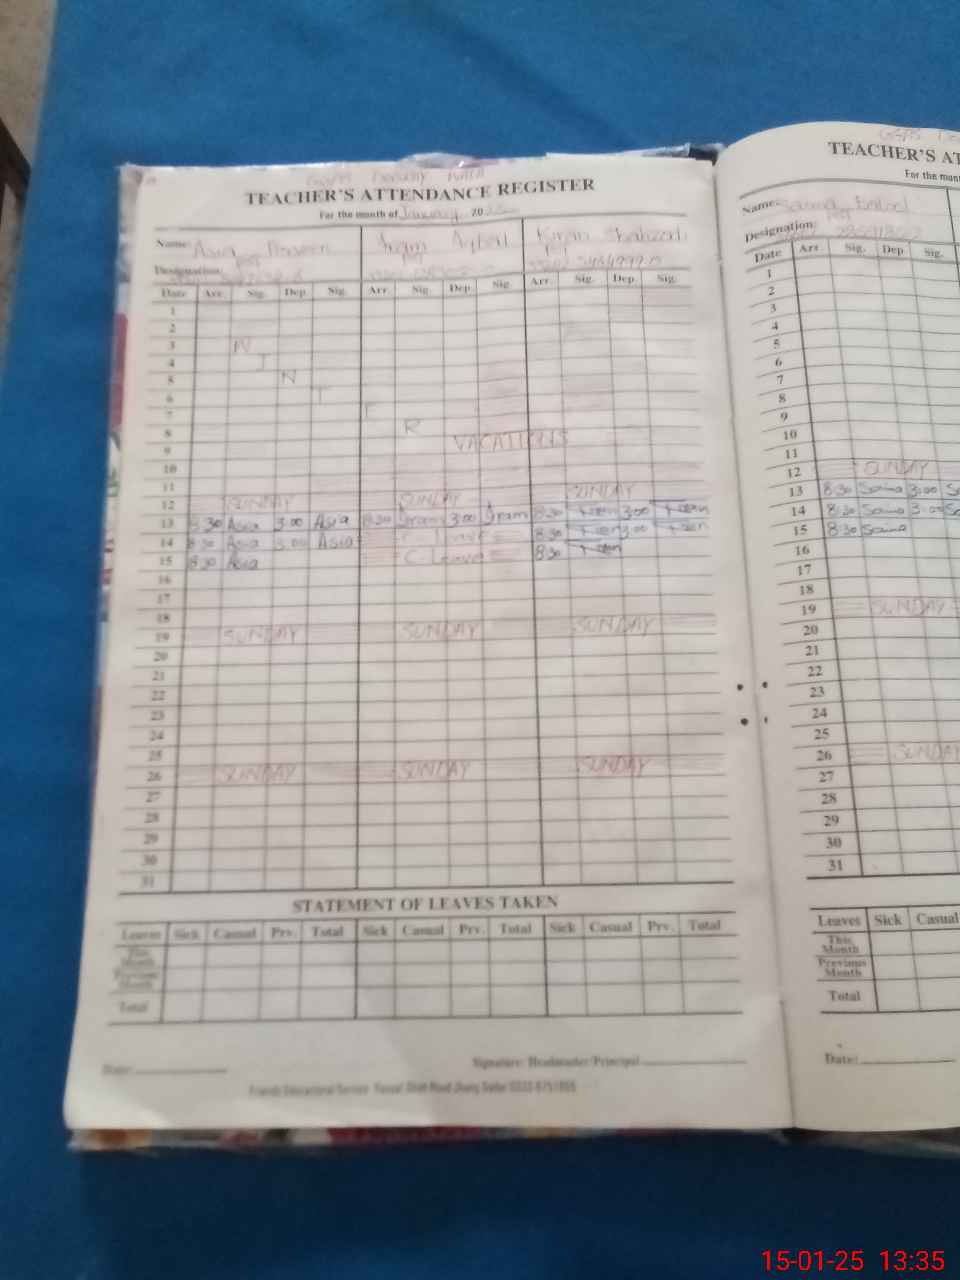 TEACHER'S ATTENDANCE REGISTER
For the month of January 20
Name: Asia Praveen Iram Iqbal Kiran Shahzadi
Designation:
Date Arr. Sig. Dep Sig. Arr. Sig. Dep Sig. Arr. Sig. Dep Sig.
1
2
3 W
4 I
5 N
6 T
7 E
8 R
9 VACATIONS
10
11
12 SUNDAY SUNDAY SUNDAY
13 8:30 Asia 3:00 Asia 8:30 Iram 3:00 Iram 8:30 3:00
14 8:30 Asia 3:00 Asia C Leave 8:30 3:00
15 8:30 Asia C Leave 8:30
16
17
18
19 SUNDAY SUNDAY SUNDAY
20
21
22
23
24
25
26 SUNDAY SUNDAY SUNDAY
27
28
29
30
31
STATEMENT OF LEAVES TAKEN
Leaves Sick Casual Prv. Total Sick Casual Prv. Total Sick Casual Prv. Total
This Month
Previous Month
Total
Date: Signature: Headmaster/Principal
TEACHER'S AT
For the mon
Name: Saima
Designation:
Date Arr. Sig. Dep Sig.
1
2
3
4
5
6
7
8
9
10
11
12 SUNDAY
13 8:30 Saima 3:00 Sa
14 8:30 Saima 3:00 Sa
15 8:30 Saima
16
17
18
19 SUNDAY
20
21
22
23
24
25
26 SUNDAY
27
28
29
30
31
Leaves Sick Casual
This Month
Previous Month
Total
Date:
15-01-25 13:35